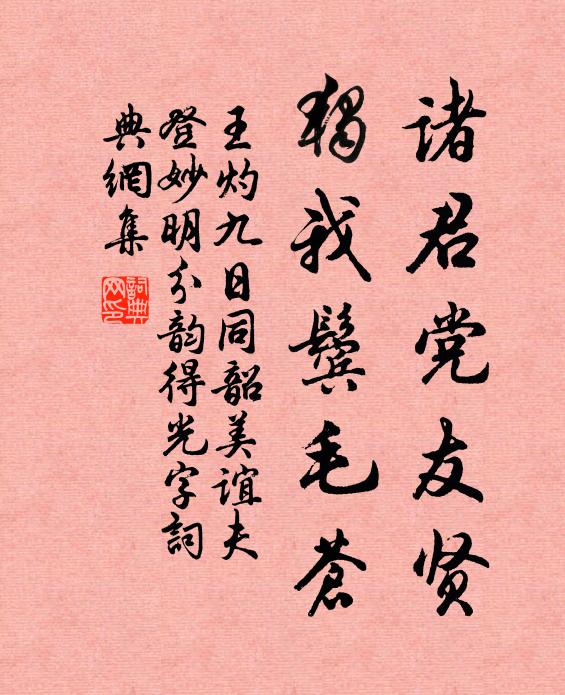 诸君党友贤
獨我鬓毛蒼
王灼九日同韶美谊夫
登妙明分韵得光字詞
典網集
詞典网印